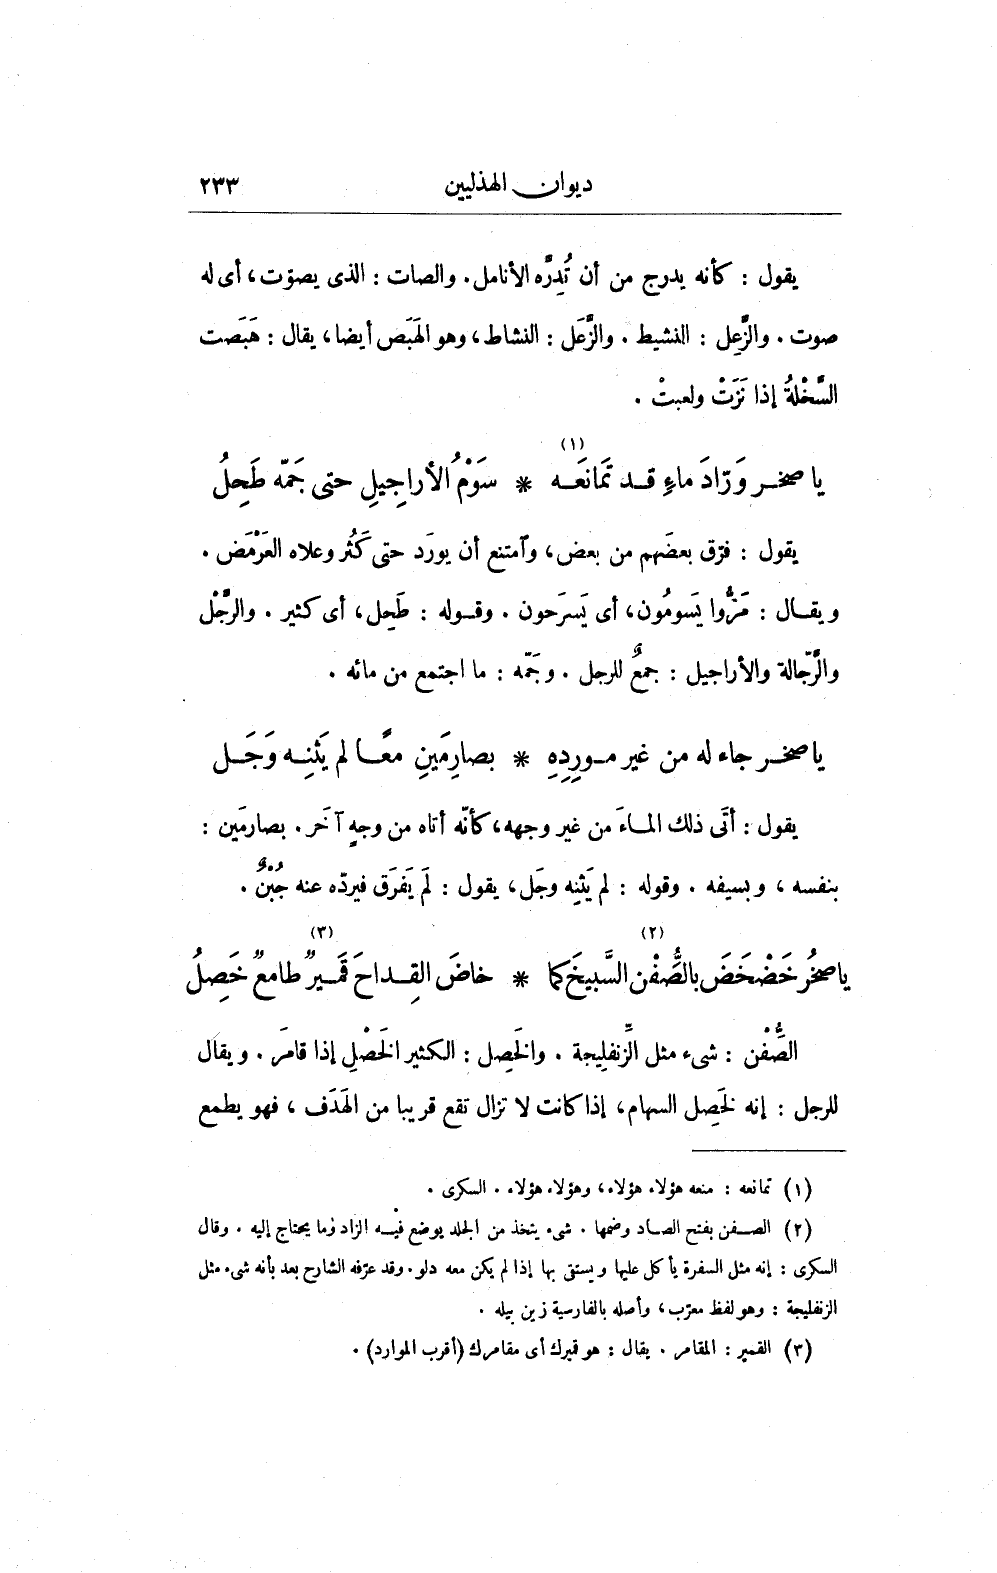 ديوان الهذليين ٢٣٣
يقول : كأنه يدرج من أن تُدِرَّه الأنامل. والصات : الذى يصوّت، أى له
صوت. والزَّعِل : النشيط. والزَّعَل : النشاط، وهو الهَبَص أيضا، يقال : هَبَصت
السَّخْلةُ إذا نَزَتْ ولعبتْ.
(١)
يا صخر وَرّادَ ماءٍ قد تَمانَعَه * سَوْمُ الأراجِيلِ حتى جَمّه طَحِلُ
يقول : فرّق بعضَهم من بعض، وآمتنع أن يورَد حتى كَثُر وعلاه العَرْمَض.
ويقال : مَرُّوا يَسومُون، أى يَسرَحون. وقوله : طَحِل، أى كثير. والرَّجْل
والرَّجّالة والأراجيل : جمعٌ للرجل. وجَمّه : ما اجتمع من مائه.
يا صخر جاء له من غير موردِهِ * بصارِمَينِ معًا لم يَثنِه وَجَل
يقول : أتَى ذلك الماءَ من غير وجهه، كأنّه أتاه من وجهٍ آخَر. بصارمَين :
بنفسه، وبسيفه. وقوله : لم يَثنِه وجَل، يقول : لَم يَفرَق فيردّه عنه جُبْنٌ.
(٢) (٣)
يا صخرُ خَضْخَضَ بالصُّفْنِ السَّبيخَ كما * خاضَ القِداحَ قَمِيرٌ طامعٌ خَصِلُ
الصُّفْن : شىء مثل الزِّنفلِيجة. والخَصِل : الكثير الخَصْلِ إذا قامَر. ويقال
للرجل : إنه لخَصِل السهام، إذا كانت لا تزال تقع قريبا من الهَدَف، فهو يطمع
(١) تمانعه : منعه هؤلاء هؤلاء، وهؤلاء هؤلاء. السكرى.
(٢) الصفن بفتح الصاد وضمها. شىء يتخذ من الجلد يوضع فيه الزاد وما يحتاج إليه. وقال
السكرى : إنه مثل السفرة يأكل عليها ويستقى بها إذا لم يكن معه دلو. وقد عرّفه الشارح بعد بأنه شىء مثل
الزنفليجة : وهو لفظ معرّب، وأصله بالفارسية زين بيله.
(٣) القمير : المقامر. يقال : هو قميرك أى مقامرك (أقرب الموارد).